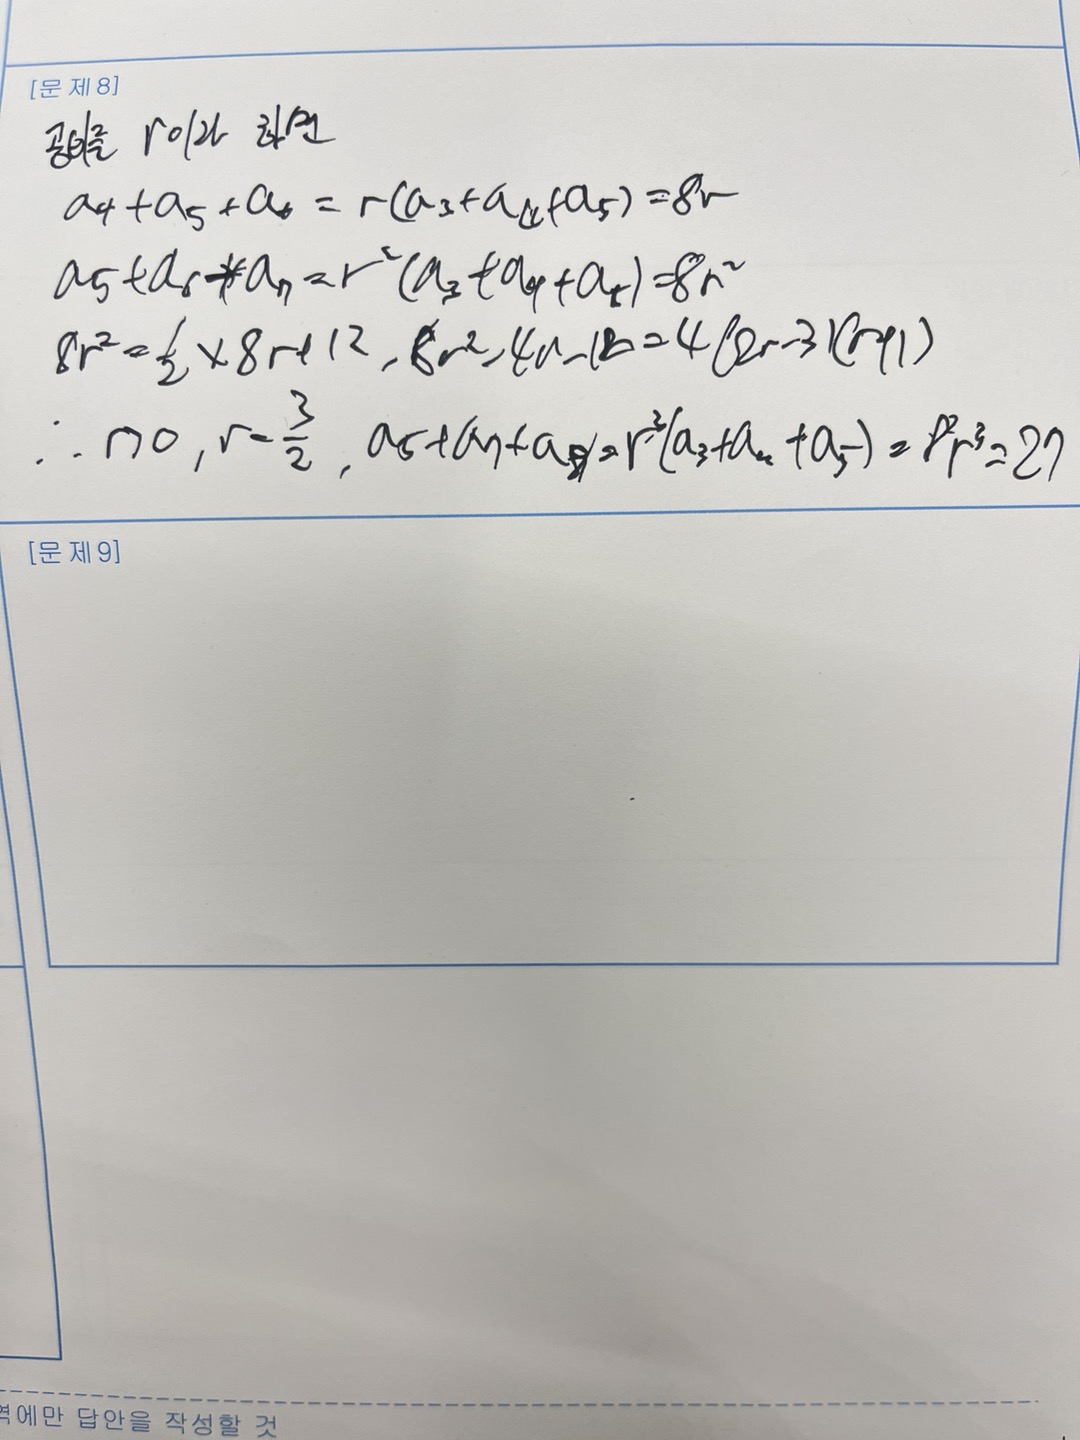 [문 제 8]
공비를 r이라 하면
a₄+a₅+a₆ = r(a₃+a₄+a₅) = 8r
a₅+a₆+a₇ = r²(a₃+a₄+a₅) = 8r²
8r² = ½ × 8r+12, 8r²-4r-12 = 4(2r-3)(r+1)
∴ r>0, r = 3/2, a₆+a₇+a₈ = r³(a₃+a₄+a₅) = 8r³ = 27
[문 제 9]
역에만 답안을 작성할 것